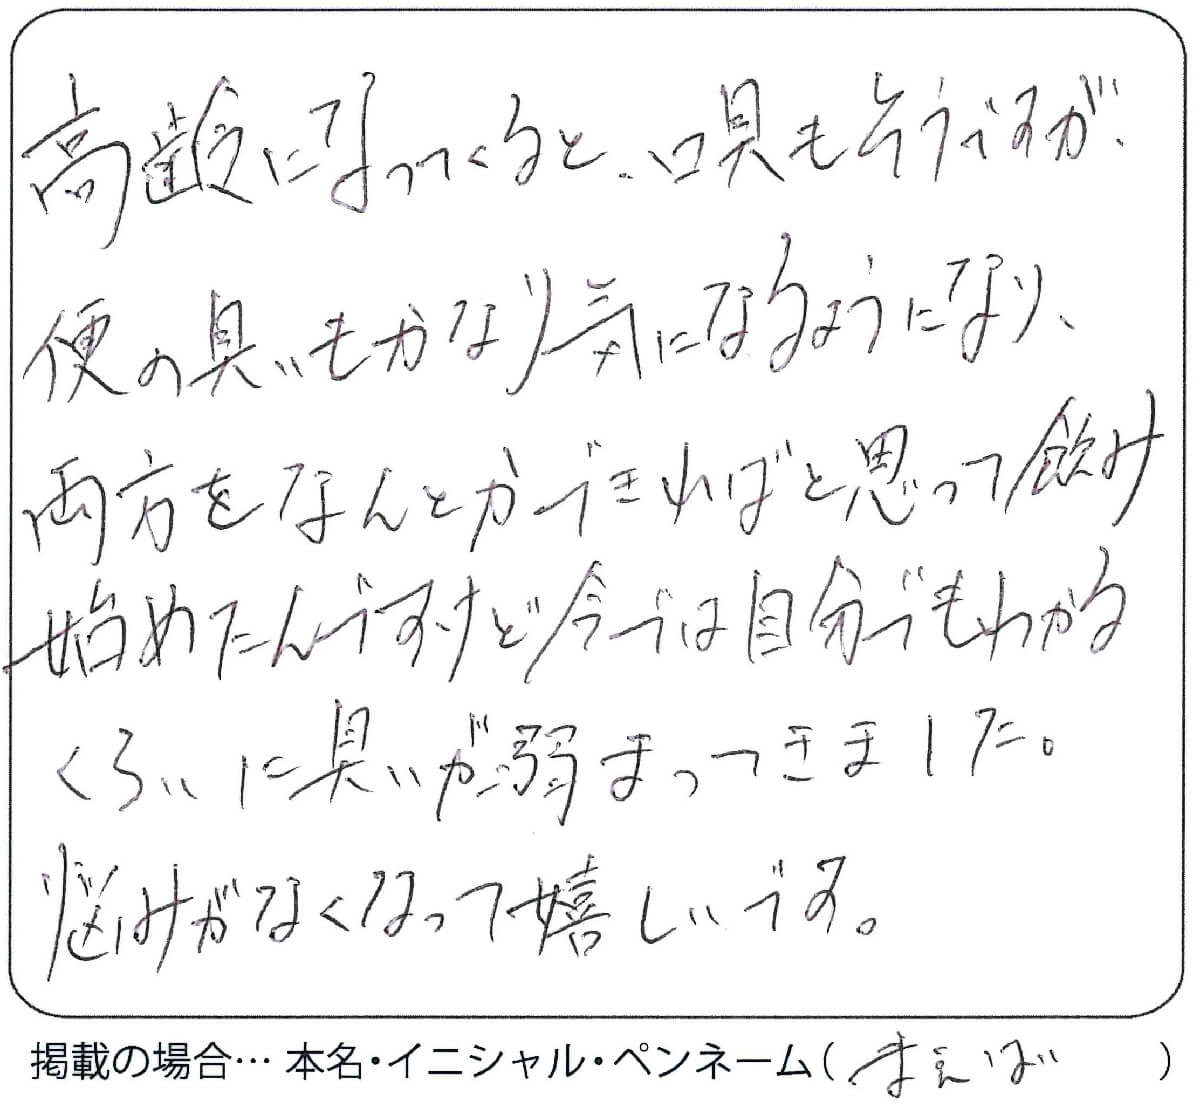 高齢になってくると、口臭もそうですが、
便の臭いもかなり気になるようになり、
両方をなんとかできればと思って飲み
始めたんですけど今では自分でもわかる
くらいに臭いが弱まってきました。
悩みがなくなって嬉しいです。
掲載の場合… 本名・イニシャル・ペンネーム( まえば )